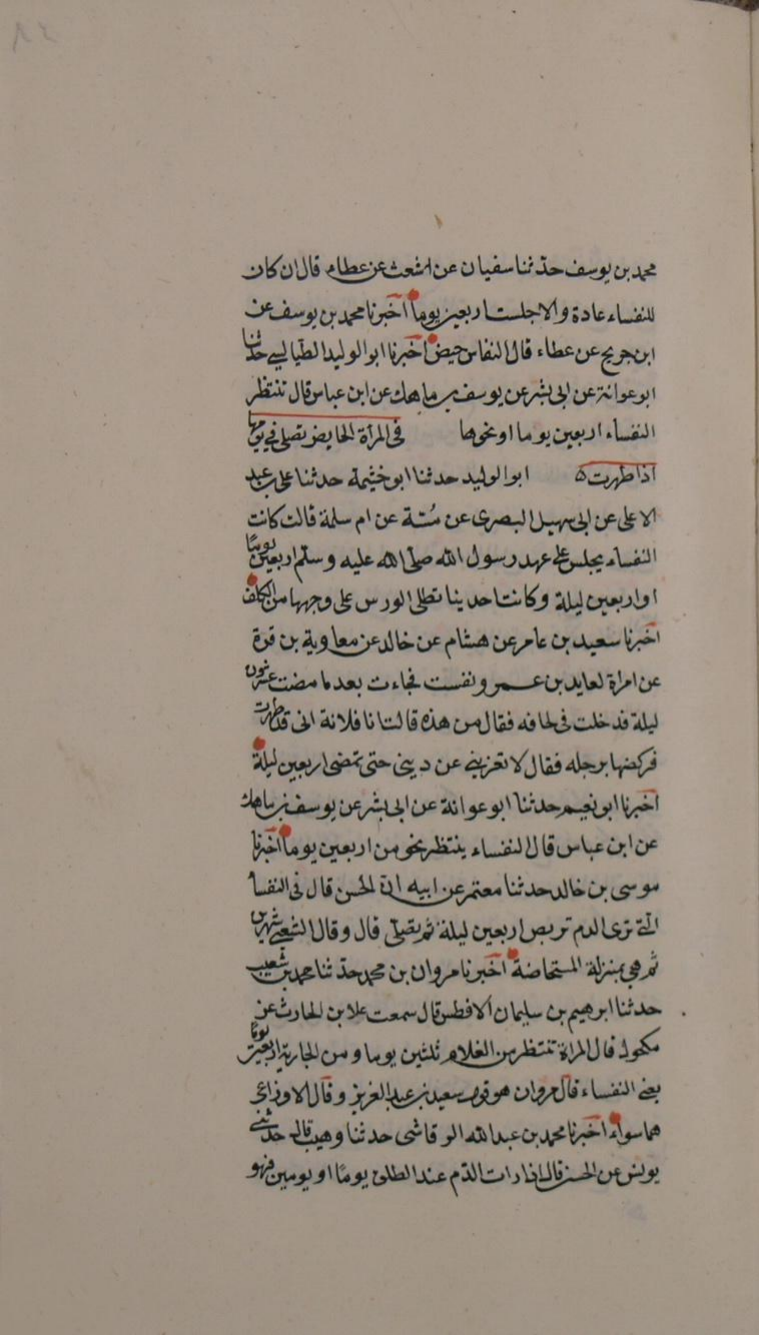 محمد بن يوسف حدثنا سفيان عن اشعث عن عطاء قال ان كان
للنفساء عادة والا جلست اربعين يوما اخبرنا محمد بن يوسف عن
ابن جريج عن عطاء قال النفاس حيض اخبرنا ابو الوليد الطيالسي حدثنا
ابو عوانة عن ابى بشر عن يوسف بن ماهك عن ابن عباس قال تنتظر
النفساء اربعين يوما او نحوها في المرأة الحايض تصلى في يومها
اذا طهرت ابو الوليد حدثنا ابو خيثمة حدثنا على بن عبد
الاعلى عن ابى سهيل البصرى عن مُسّة عن ام سلمة قالت كانت
النفساء يجلس على عهد رسول الله صلى الله عليه وسلم اربعين يومًا
او اربعين ليلة وكانت احدينا تطلى الورس على وجهها من الكلف
اخبرنا سعيد بن عامر عن هشام عن خالد عن معاوية بن قرة
عن امراة لعايد بن عمرو نفست فجاءت بعد ما مضت عشرون
ليلة فدخلت فى لحافه فقال من هذه قالت انا فلانة انى قد طهرت
فركضها برجله فقال لا تغرينى عن دينى حتى تمضى اربعين ليلة
اخبرنا ابو نعيم حدثنا ابو عوانة عن ابى بشر عن يوسف بن ماهك
عن ابن عباس قال النفساء ينتظر نحو من اربعين يوما اخبرنا
موسى بن خالد حدثنا معتمر عن ابيه ان الحسن قال فى النفسا
التى ترى الدم تربص اربعين ليلة ثم تصلى قال وقال الشعبى شهرين
ثم هى بمنزلة المستحاضة اخبرنا مروان بن محمد حدثنا محمد بن شعيب
حدثنا ابرهيم بن سليمان الافطس قال سمعت علا بن الحارث عن
مكحول قال المراة تنتظر من الغلام ثلثين يوما ومن الجارية اربعين يومًا
يعنى النفساء قال مروان هو قول سعيد بن عبد العزيز وقال الاوزاعى
هما سواء اخبرنا محمد بن عبد الله الرقاشى حدثنا وهيب قال حدثنى
يونس عن الحسن قال اذا رات الدّم عند الطلق يومًا او يومين فهو